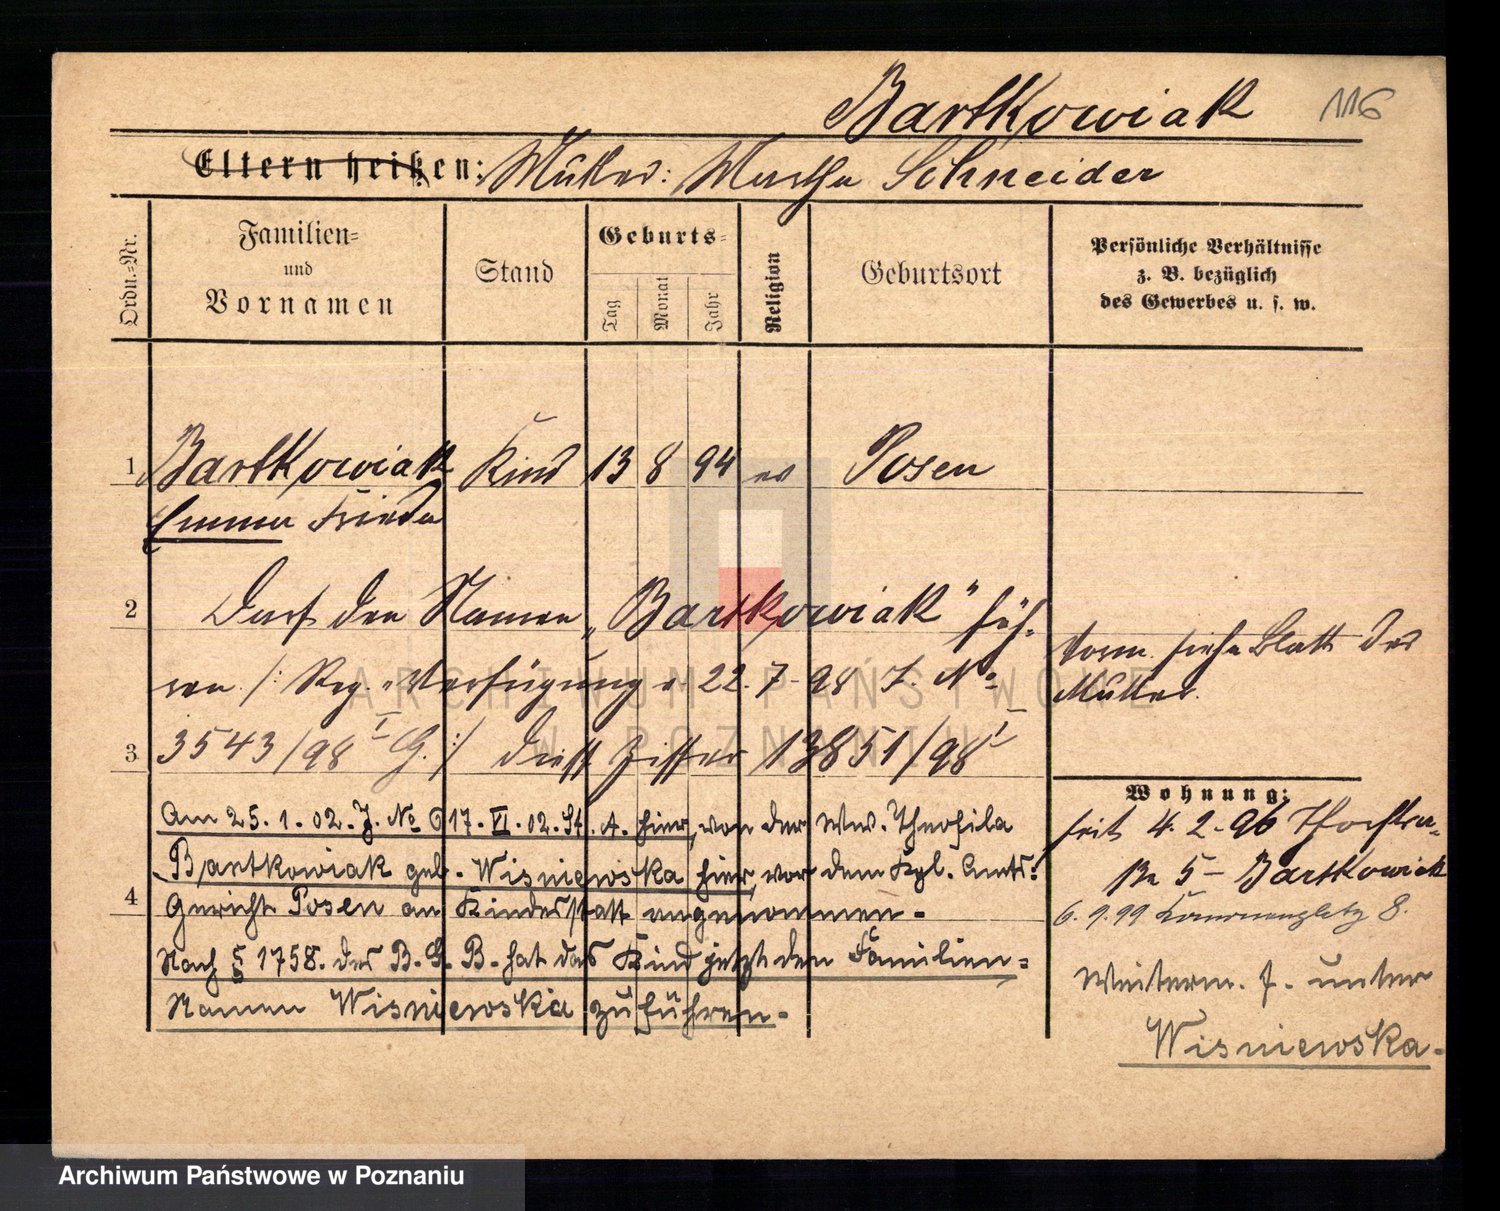 Bartkowiak 116
Eltern heißen: Mutter: Martha Schneider
Ordn.-Nr.
Familien-
und
Vornamen
Stand
Geburts-
Tag
Monat
Jahr
Religion
Geburtsort
Persönliche Verhältnisse
z. B. bezüglich
des Gewerbes u. s. w.
1 Bartkowiak Kind 13 8 94 ev Posen
Emma Frieda
2 Darf den Namen „Bartkowiak" füh-
ren /: Reg. Verfügung v 22.7.98 J. No
3 3543/98 I G. :/ dieff Ziffer 13851/98 I
Am 25.1.02. J. No 617. VI. 02. St. A. hier, von der Ww. Theofila
Bartkowiak geb. Wisniewska hier, vor dem Kgl. Amts-
4 Gericht Posen an Kindesstatt angenommen.
Nach § 1758. des B. G. B. hat das Kind jetzt den Familien-
Namen Wisniewska zu führen.
vorm. siehe Blatt der
Mutter.
Wohnung:
seit 4.2.96
5 Bartkowiak
6.9.99 8.
Weiterm. s. unter
Wisniewska.
ARCHIWUM PAŃSTWOWE
W POZNANIU
Archiwum Państwowe w Poznaniu